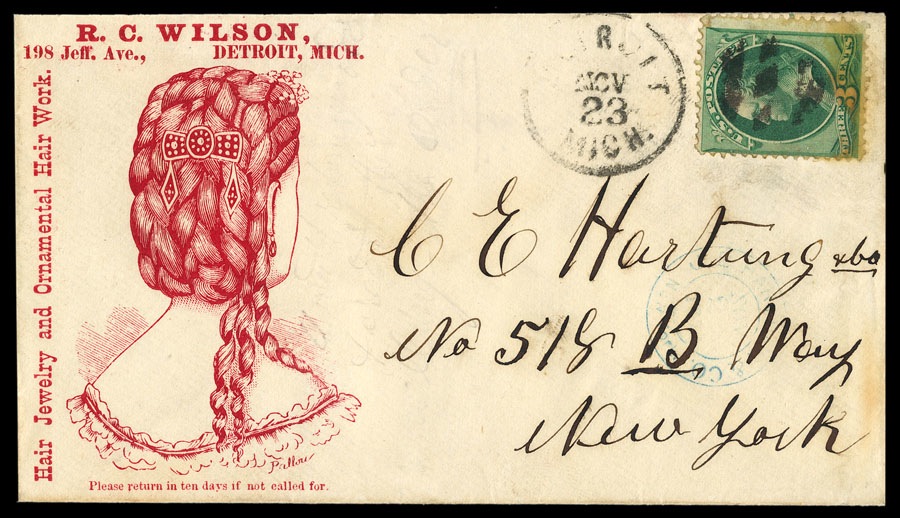 R. C. WILSON,
198 Jeff. Ave., DETROIT, MICH.
Hair Jewelry and Ornamental Hair Work.
Please return in ten days if not called for.
NOV
23
MICH.
C E Hartung & Co
No 518 B. Way
New York